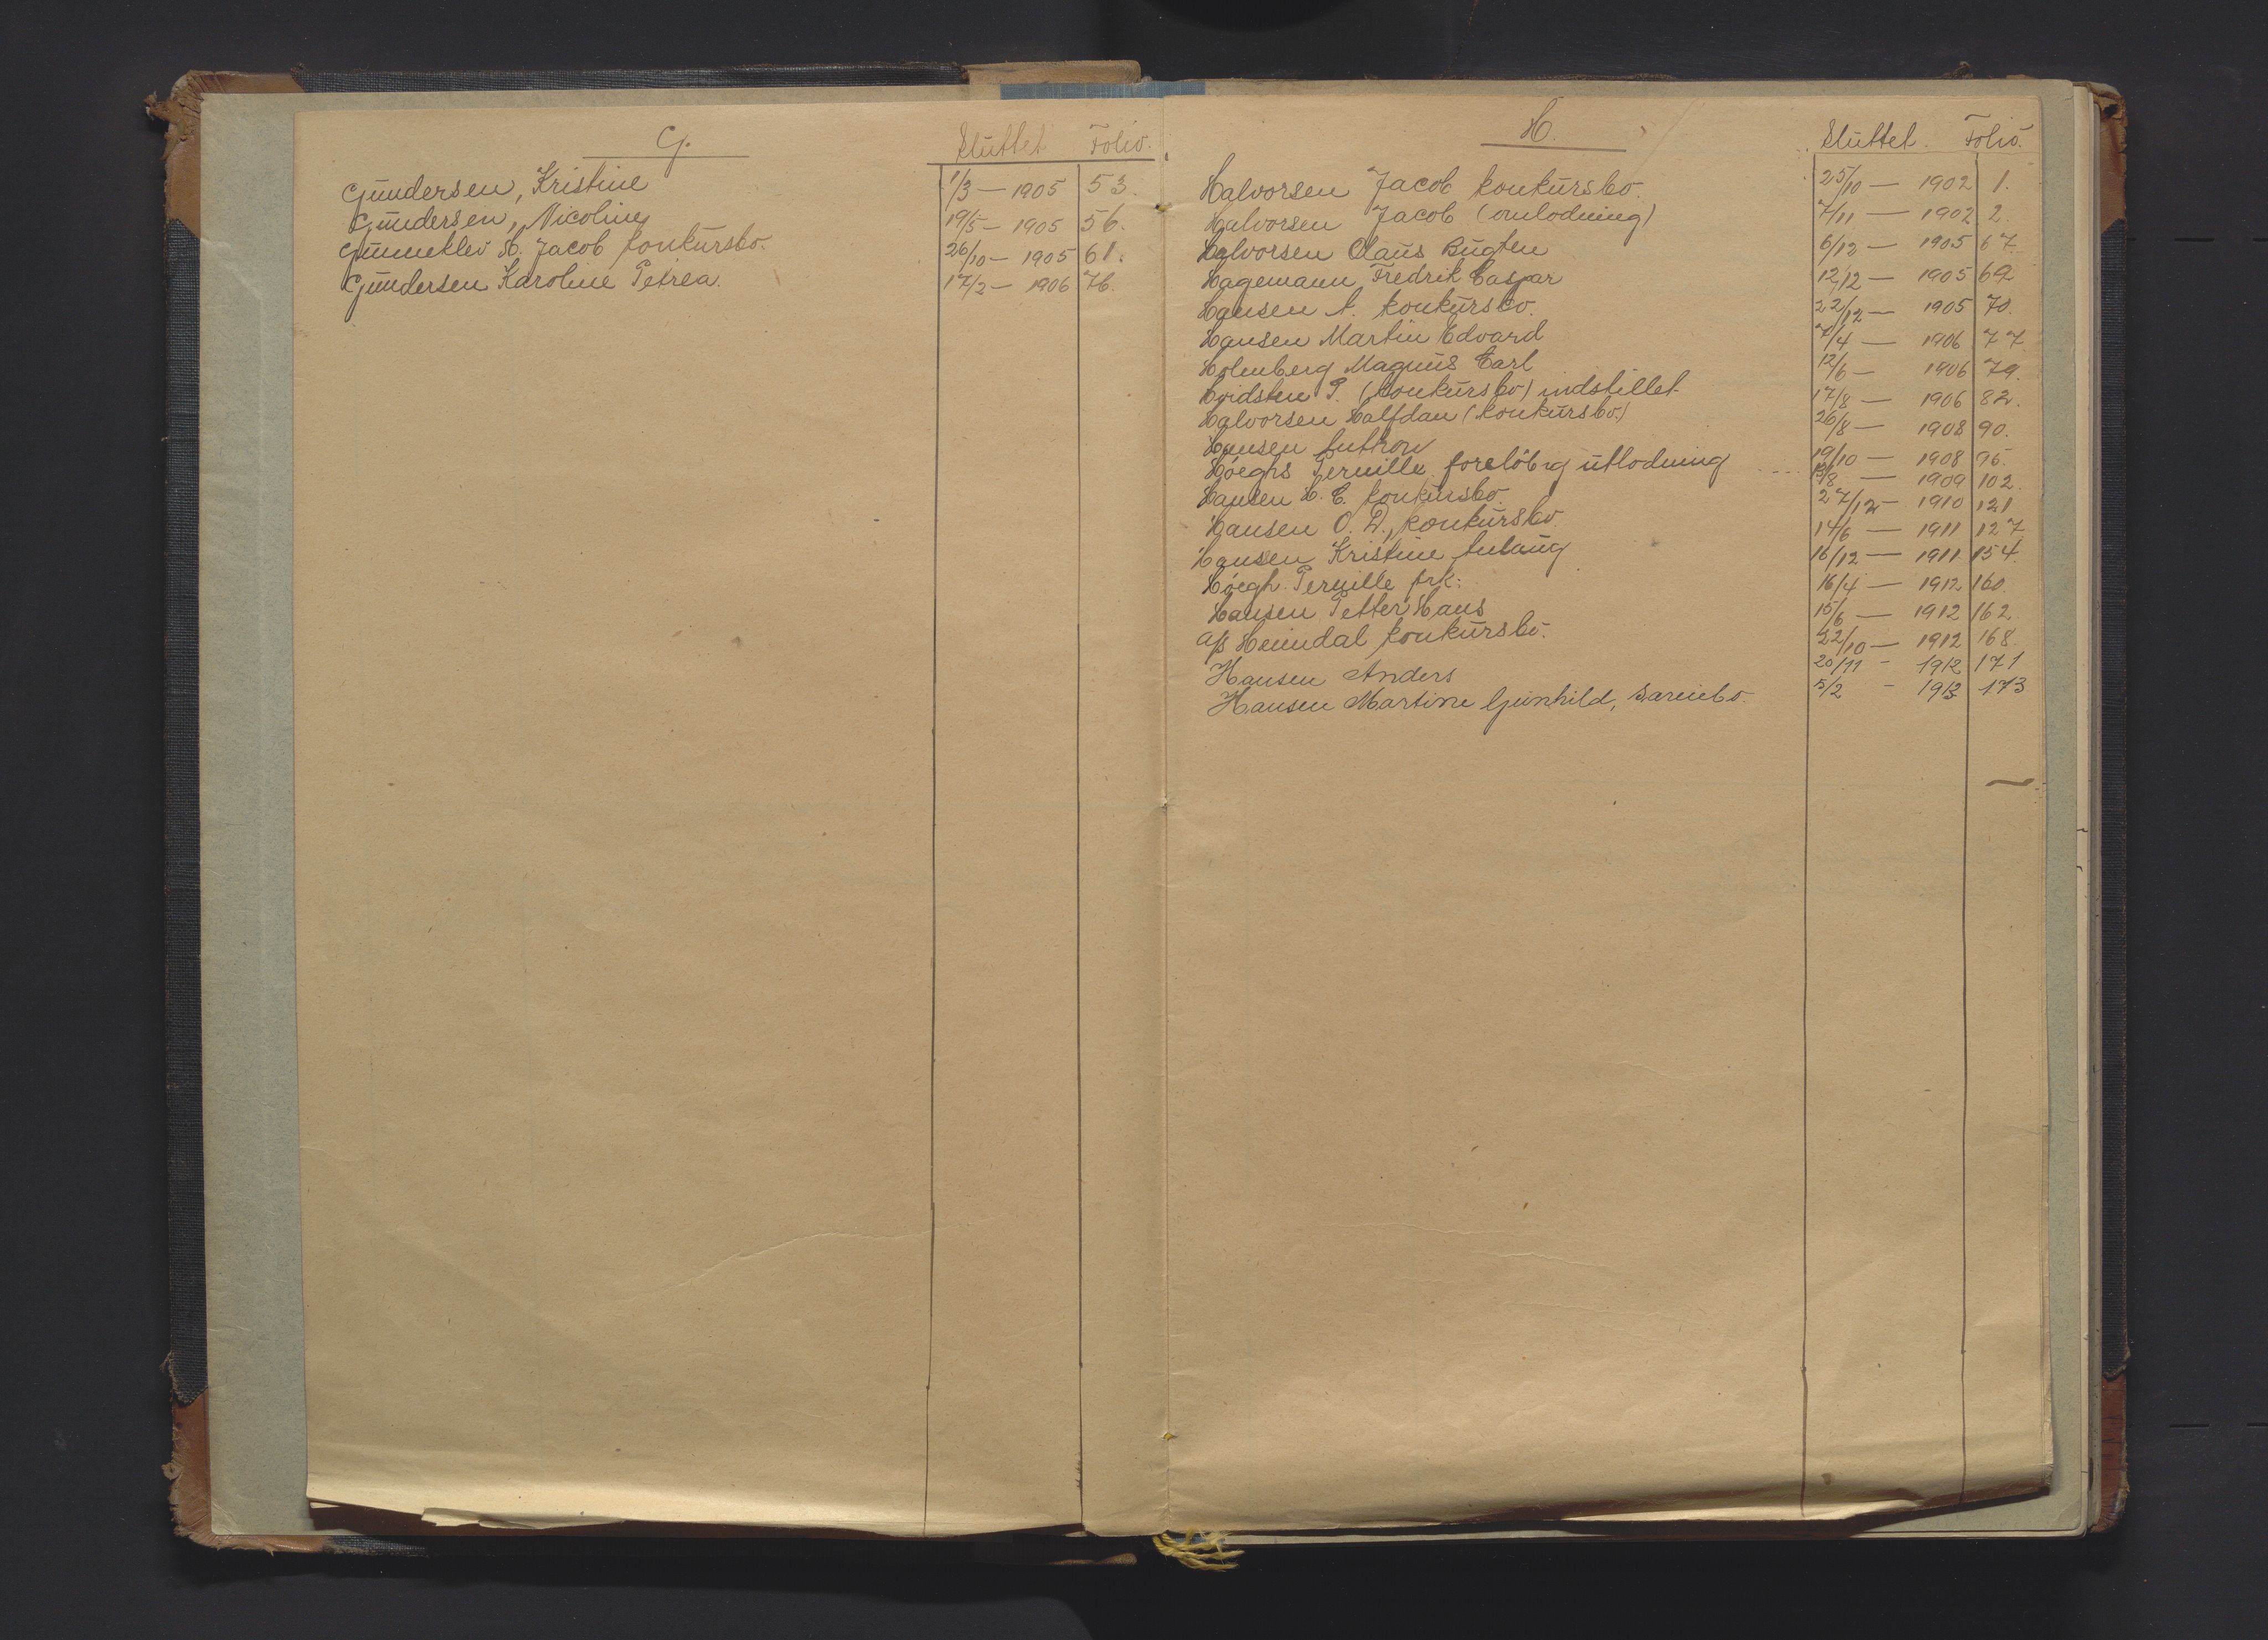 G. Sluttet Folio.
Gundersen, Kristine 1/3 — 1905 53.
Gundersen, Nicoline 19/5 — 1905 56.
Gunneklev H. Jacob konkursbo. 26/10 — 1905 61.
Gundersen Karoline Petrea. 17/2 — 1906 76.
H. Sluttet. Folio.
Halvorsen Jacob konkursbo. 25/10 — 1902 1.
Halvorsen Jacob (omlodning) 7/11 — 1902 2.
Halvorsen Claus Bugten 6/12 — 1905 67
Hagemann Fredrik Caspar 12/12 — 1905 69
Hansen A. konkursbo. 22/12 — 1905 70.
Hansen Martin Edvard 7/4 — 1906 77
Holmberg Magnus Carl 12/6 — 1906 79.
Hvidsten P. (konkursbo) indstillet 17/8 — 1906 82.
Halvorsen Halfdan (konkursbo.) 26/8 — 1908 90.
Hansen Anthon 19/10 — 1908 95.
Höeghs Pernille foreløbig utlodning /8 — 1909 102.
Hansen H. C. konkursbo. 27/12 — 1910 121
Hansen O. D., konkursbo. 14/6 — 1911 127
Hansen Kristine Anlaug 16/12 — 1911 154.
Höegh Pernille frk: 16/4 — 1912 160.
Hansen Petter Hans 15/6 — 1912 162.
A/S Heimdal konkursbo. 22/10 — 1912 168.
Hansen Anders 20/11 - 1912 171
Hansen Martine Gunhild, særeiebo. 5/2 - 1913 173